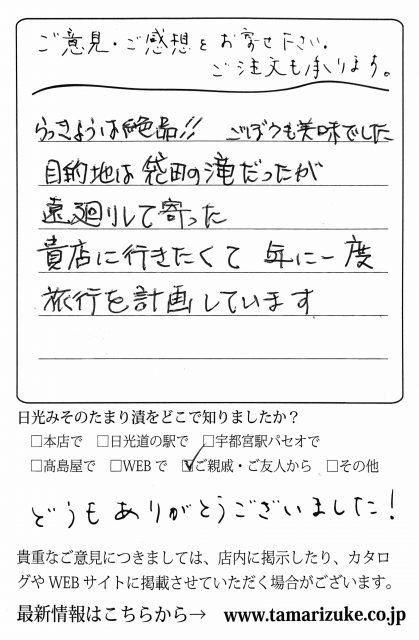 ご意見・ご感想をお寄せ下さい。
ご注文も承ります。
らっきょうは絶品!! ごぼうも美味でした
目的地は袋田の滝だったが
遠廻りして寄った
貴店に行きたくて 年に一度
旅行を計画しています
日光みそのたまり漬をどこで知りましたか？
□本店で □日光道の駅で □宇都宮駅パセオで
□髙島屋で □WEBで ☑ご親戚・ご友人から □その他
どうもありがとうございました！
貴重なご意見につきましては、店内に掲示したり、カタロ
グやWEBサイトに掲載させていただく場合がございます。
最新情報はこちらから→ www.tamarizuke.co.jp